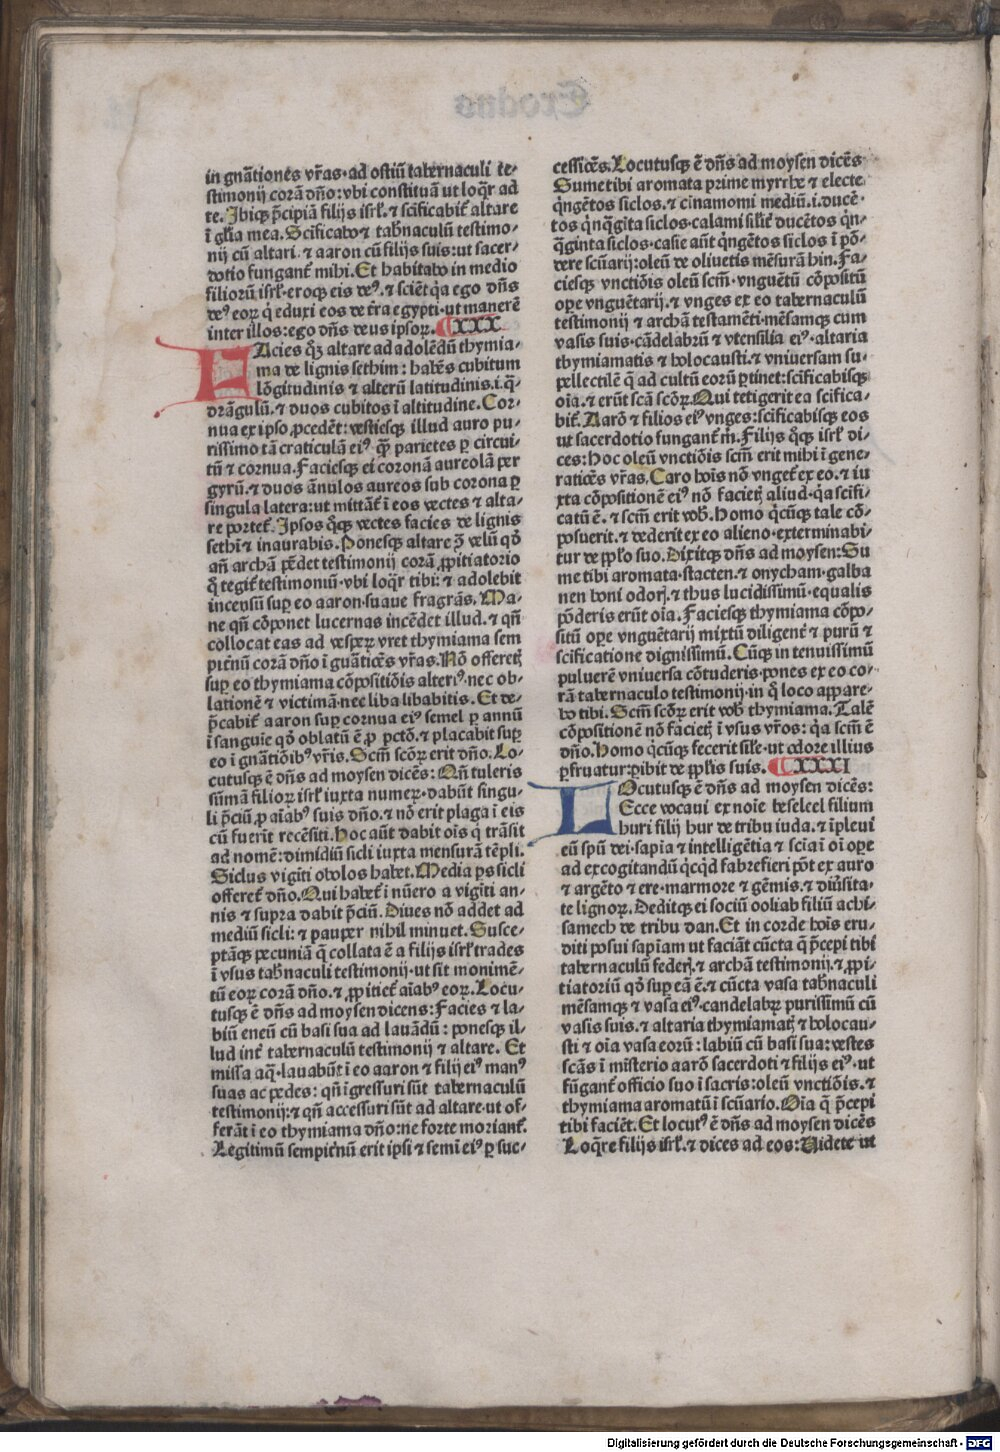 in gnãtiones vr̃as·ad ostiũ tabernaculi te⸗
stimonij corã dño:vbi constituã ut loqr̃ ad
te. Ibiqꝫ p̃cipiã filijs isrl̃.⁊ scificabit̃ altare
ĩ gl̃ia mea. Scificabo⁊ tab̃naculũ testimo⸗
nij cũ altari.⁊ aaron cũ filijs suis:ut sacer⸗
dotio fungant̃ mihi. Et habitabo in medio
filiorũ isrl̃·eroqꝫ eis deꝰ.⁊ sciẽt q̃a ego dñs
deꝰ eoꝝ q̃ eduxi eos de t̃ra egypti·ut manerẽ
inter illos:ego dñs deus ipsoꝝ. XXX
FAcies qꝫ altare ad adolẽdũ thymia⸗
ma de lignis sethim: habẽs cubitum
lõgitudinis ⁊ alterũ latitudinis.i.q̃⸗
drãgulũ.⁊ duos cubitos ĩ altitudine. Cor⸗
nua ex ipso ꝓcedẽt: vestiesqꝫ illud auro pu⸗
rissimo tã craticulã eiꝰ q̃ꝫ parietes ꝑ circui⸗
tũ ⁊ cornua. Faciesqꝫ ei coronã aureolã per
gyrũ.⁊ duos ãnulos aureos sub corona ꝑ
singula latera:ut mittãt̃ ĩ eos vectes ⁊ alta⸗
re portet̃. Ipsos qꝫ vectes facies de lignis
sethĩ ⁊ inaurabis. Ponesqꝫ altare ꝯ̃ velũ qð
añ archã pẽdet testimonij corã ꝓpitiatorio
q̃ tegit̃ testimoniũ·vbi loqr̃ tibi: ⁊ adolebit
incensũ suꝑ eo aaron·suaue fragrãs. Ma⸗
ne qñ cõponet lucernas incẽdet illud. ⁊ qñ
collocat eas ad vesꝑeꝝ vret thymiama sem
pit̃nũ corã dño ĩ gnãtiões vr̃as. Nõ offeretꝭ
suꝑ eo thymiama cõpositiõis alteriꝰ·nec ob⸗
lationẽ ⁊ victimã·nec liba libabitis. Et de⸗
p̃cabit̃ aaron suꝑ cornua eiꝰ semel ꝑ annũ
ĩ sanguĩe qð oblatũ ẽ ꝓ pctõ.⁊ placabit suꝑ
eo ĩ gnãtiõibꝰ vr̃is. Scm̃ scõꝝ erit dño. Lo⸗
cutusqꝫ ẽ dñs ad moysen dicẽs: Qñ tuleris
sũmã filioꝝ isrl̃ iuxta numeꝝ·dabũt singu⸗
li p̃ciũ ꝓ aĩabꝰ suis dño.⁊ nõ erit plaga ĩ eis
cũ fuerĩt recẽsiti. Hoc aũt dabit oĩs q̃ trãsit
ad nomẽ:dimidiũ sicli iuxta mensurã tẽpli.
Siclus vigĩti obolos habet. Media ꝑs sicli
offeret̃ dño. Qui habet̃ ĩ nũero a vigĩti an⸗
nis ⁊ supra dabit p̃ciũ. Diues nõ addet ad
mediũ sicli: ⁊ pauper nihil minuet. Susce⸗
ptãqꝫ pecuniã q̃ collata ẽ a filijs isrl̃ trades
ĩ vsus tab̃naculi testimonij·ut sit monimẽ⸗
tũ eoꝝ corã dño.⁊ ꝓpitiet̃ aĩabꝰ eoꝝ. Locu⸗
tusqꝫ ẽ dñs ad moysen dicens: Facies ⁊ la⸗
biũ eneũ cũ basi sua ad lauãdũ: ponesqꝫ il⸗
lud int̃ tabernaculũ testimonij ⁊ altare. Et
missa aq̃·lauabũt ĩ eo aaron ⁊ filij eiꝰ manꝰ
suas ac pedes: qñ ĩgressuri sũt tabernaculũ
testimonij:⁊ qñ accessuri sũt ad altare·ut of⸗
ferãt ĩ eo thymiama dño:ne forte moriant̃.
Legitimũ sempit̃nũ erit ipsi ⁊ semĩ eiꝰ ꝑ suc⸗
cessiões. Locutusqꝫ ẽ dñs ad moysen dicẽs
Sume tibi aromata prime myrrhe ⁊ electe
qͥngẽtos siclos.⁊ cinamomi mediũ.i.ducẽ⸗
tos qͥnqͣgĩta siclos·calami silit̃ ducẽtos qͥn⸗
qͣginta siclos·casie aũt qͥngẽtos siclos ĩ põ⸗
dere scũarij:oleũ de oliuetis mẽsurã hin. Fa⸗
ciesqꝫ vnctiõis oleũ scm̃·vnguẽtũ cõpositũ
ope vnguẽtarij.⁊ vnges ex eo tabernaculũ
testimonij ⁊ archã testamẽti·mẽsamqꝫ cum
vasis suis·cãdelabrũ ⁊ vtensilia eiꝰ·altaria
thymiamatis ⁊ holocausti.⁊ vniuersam su⸗
pellectilẽ q̃ ad cultũ eorũ ꝑtinet:scĩficabisqꝫ
oĩa.⁊ erũt scã scõꝝ. Qui tetigerit ea scifica⸗
bit̃. Aarõ ⁊ filios eiꝰ vnges:scificabisqꝫ eos
ut sacerdotio fungant̃ m̃. Filijs qꝫ isrl̃ di⸗
ces: Hoc oleũ vnctiõis scm̃ erit mihi ĩ gene⸗
ratiões vr̃as. Caro hoĩs nõ vnget̃ ex eo.⁊ iu
xta cõpositionẽ eiꝰ nõ facietꝭ aliud·q̃a scifi⸗
catũ ẽ.⁊ scm̃ erit vob̃. Homo qͥcũqꝫ tale cõ⸗
posuerit.⁊ dederit ex eo alieno·exterminabi⸗
tur de pp̃lo suo. Dixitqꝫ dñs ad moysen: Su
me tibi aromata·stacten.⁊ onycham·galba
nen boni odorꝭ.⁊ thus lucidissimũ·equalis
põderis erũt oĩa. Faciesqꝫ thymiama cõpo⸗
sitũ ope vnguẽtarij mixtũ diligent̃ ⁊ purũ ⁊
scificatione dignissimũ. Cũqꝫ in tenuissimũ
puluerẽ vniuersa cõtuderis·pones ex eo co⸗
rã tabernaculo testimonij·in q̊ loco appare⸗
bo tibi. Scm̃ scõꝝ erit vob̃ thymiama. Talẽ
cõpositionẽ nõ facietꝭ ĩ vsus vr̃os: q̃a scm̃ ẽ
dño. Homo qͥcũqꝫ fecerit sil̃e·ut odore illius
ꝑfruatur:ꝑibit de pp̃lis suis. XXXI
LOcutusqꝫ ẽ dñs ad moysen dicẽs:
Ecce vocaui ex noĩe beseleel filium
huri filij hur de tribu iuda.⁊ ĩpleui
eũ spũ dei·sapĩa ⁊ intelligẽtia ⁊ sciẽtia ĩ oĩ ope
ad excogitandũ qͥcqͥd fabrefieri põt ex auro
⁊ argẽto ⁊ ere·marmore ⁊ gẽmis.⁊ diũsita⸗
te lignoꝝ. Deditqꝫ ei sociũ ooliab filiũ achi⸗
samech de tribu dan. Et in corde hoĩs eru⸗
diti posui sapĩam ut faciãt cũcta q̃ p̃cepi tibi
tabernaculũ federꝭ.⁊ archã testimonij.⁊ ꝓpi⸗
tiatoriũ qð suꝑ eã ẽ.⁊ cũcta vasa tab̃naculi
mẽsamqꝫ ⁊ vasa eiꝰ·candelabꝝ purissimũ cũ
vasis suis.⁊ altaria thymiamatꝭ ⁊ holocau⸗
sti ⁊ oĩa vasa eorũ: labiũ cũ basi sua:vestes
scãs ĩ mĩsterio aarõ sacerdoti ⁊ filijs eiꝰ·ut
fũgant̃ officio suo ĩ sacris:oleũ vnctiõis.⁊
thymiama aromatũ ĩ scũario. Oĩa q̃ p̃cepi
tibi faciẽt. Et locutꝰ ẽ dñs ad moysen dicẽs
Loq̃re filijs isrl̃.⁊ dices ad eos: Videte ut
Digitalisierung gefördert durch die Deutsche Forschungsgemeinschaft · DFG